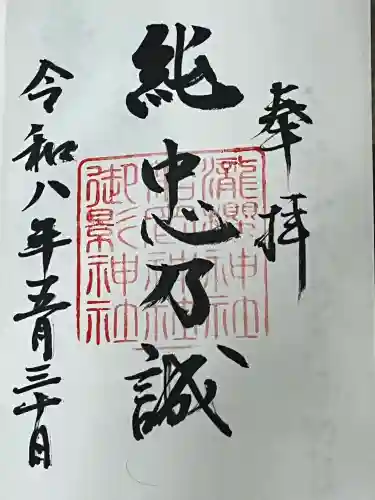 奉拝
純忠乃誠
瀧櫻神社
神社
御影神社
令和八年五月三十日